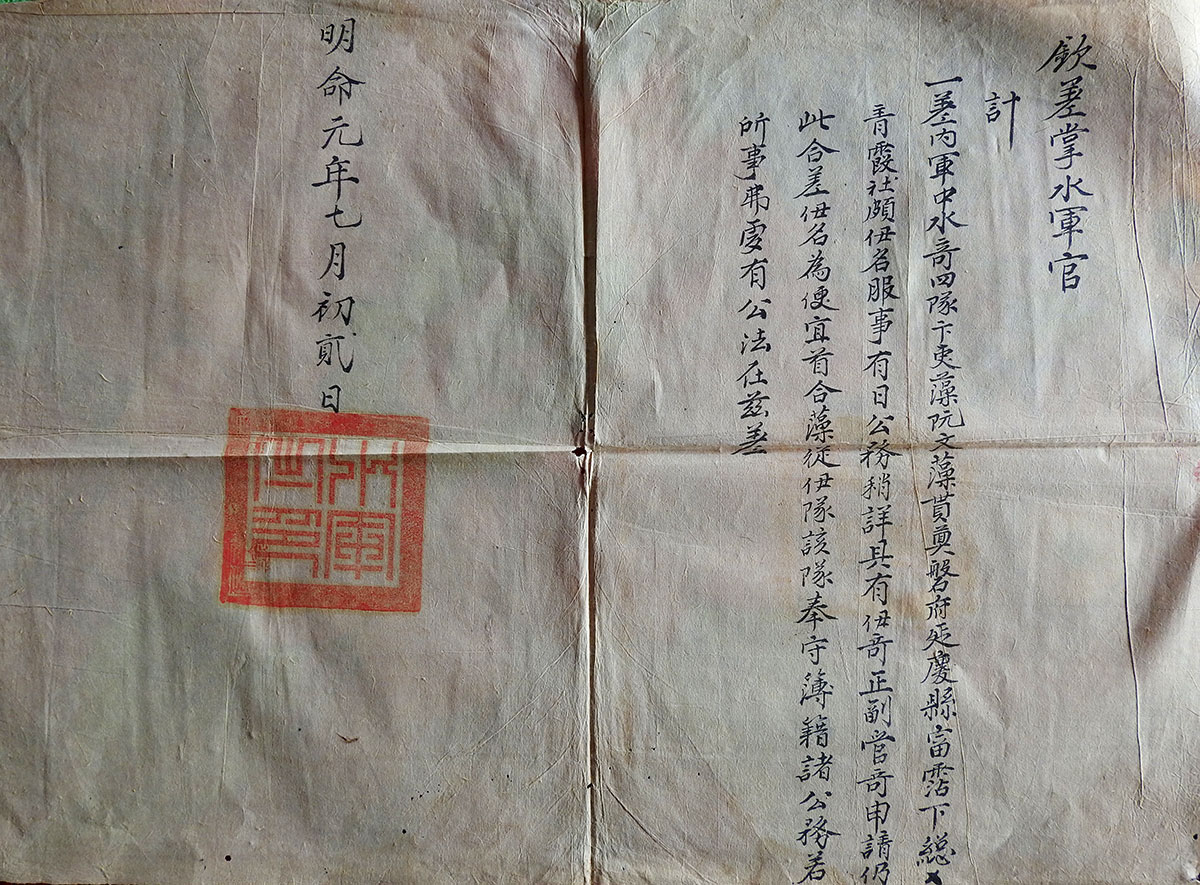 欽差掌水軍官
計
一差內軍中水竒四隊卞吏藻阮文藻貫奠磐府延慶縣富霑下総
青霞社頗伊名服事有日公務稍詳具有伊竒正副管竒申請仍
此合差伊名為便宜首合藻從伊隊該隊奉守簿籍諸公務若
所事弗虔有公法在茲差
明命元年七月初貳日
水軍之印